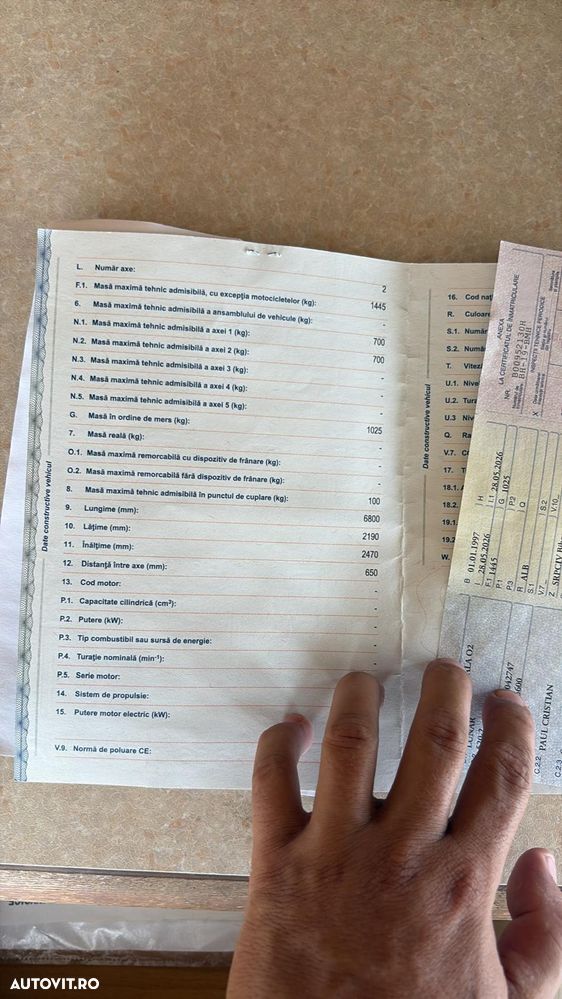 L. Număr axe: 2
F.1. Masă maximă tehnic admisibilă, cu excepția motocicletelor (kg): 1445
6. Masă maximă tehnic admisibilă a ansamblului de vehicule (kg): -
N.1. Masă maximă tehnic admisibilă a axei 1 (kg): 700
N.2. Masă maximă tehnic admisibilă a axei 2 (kg): 700
N.3. Masă maximă tehnic admisibilă a axei 3 (kg): -
N.4. Masă maximă tehnic admisibilă a axei 4 (kg): -
N.5. Masă maximă tehnic admisibilă a axei 5 (kg): -
G. Masă în ordine de mers (kg): 1025
7. Masă reală (kg): -
O.1. Masă maximă remorcabilă cu dispozitiv de frânare (kg): -
O.2. Masă maximă remorcabilă fără dispozitiv de frânare (kg): -
8. Masă maximă tehnic admisibilă în punctul de cuplare (kg): 100
9. Lungime (mm): 6800
10. Lățime (mm): 2190
11. Înălțime (mm): 2470
12. Distanță între axe (mm): 650
13. Cod motor: -
P.1. Capacitate cilindrică (cm³): -
P.2. Putere (kW): -
P.3. Tip combustibil sau sursă de energie: -
P.4. Turație nominală (min⁻¹): -
P.5. Serie motor:
14. Sistem de propulsie:
15. Putere motor electric (kW):
V.9. Normă de poluare CE:
Date constructive vehicul
16. Cod
R. Culoare
S.1.
S.2.
T.
U.1.
U.2.
U.3
Q.
V.7.
17.
18.1.
18.2.
19.1.
19.2
W.
Date constructive vehicul
ANEXA
LA CERTIFICATUL DE ÎNMATRICULARE
NR. B00952130H
BH-19-BMH
INSPECȚII TEHNICE PERIODICE
X
B 01.01.1997 H
I 28.05.2026 I.1 28.05.2026
F.1 1445 G 1025
P.1 P.2
P.3 Q
R ALB
S.1 S.2
V.7 V.10
Z SRPCIV
O2
C.2.2 PAUL CRISTIAN
C.2.3
AUTOVIT.RO